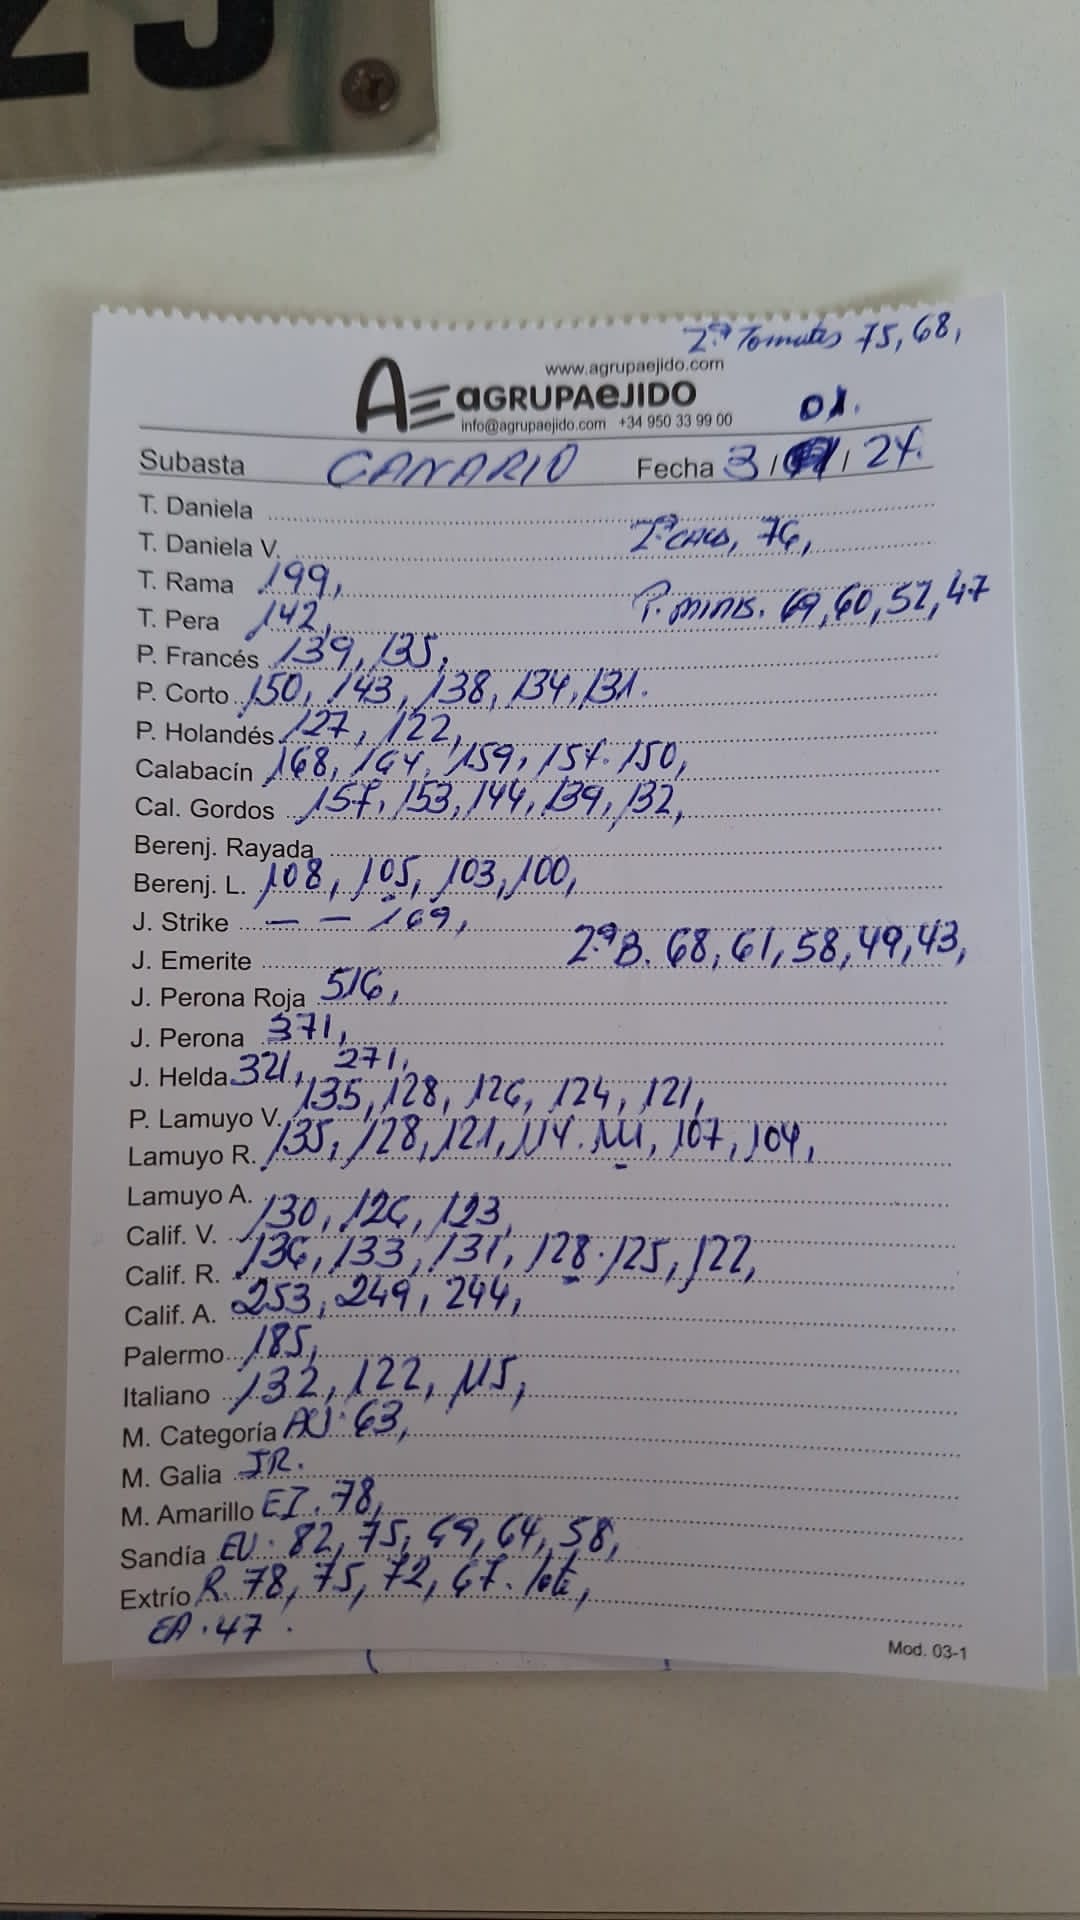 25
2ª Tomates 75, 68,
www.agrupaejido.com
AE aGRUPAeJIDO
info@agrupaejido.com +34 950 33 99 00
01.
Subasta CANARIO Fecha 3/ /24.
T. Daniela
T. Daniela V. 2ª CALO, 76,
T. Rama 199,
T. Pera 142, P. minis. 69, 60, 52, 47
P. Francés 139, 135,
P. Corto 150, 143, 138, 134, 131.
P. Holandés 127, 122,
Calabacín 168, 164, 159, 157. 150,
Cal. Gordos 157, 153, 144, 139, 132,
Berenj. Rayada
Berenj. L. 108, 105, 103, 100,
J. Strike — — 169,
J. Emerite 2ª B. 68, 61, 58, 49, 43,
J. Perona Roja 516,
J. Perona 371,
J. Helda 321, 271,
P. Lamuyo V. 135, 128, 126, 124, 121,
Lamuyo R. 135, 128, 121, 114. 111, 107, 104,
Lamuyo A.
Calif. V. 130, 126, 123,
Calif. R. 136, 133, 131, 128. 125, 122,
Calif. A. 253, 249, 244,
Palermo 185,
Italiano 132, 122, 115,
M. Categoría AU. 63,
M. Galia JR.
M. Amarillo EI. 78,
Sandía EU. 82, 75, 69, 64, 58,
Extrío R. 78, 75, 72, 67.
EA. 47.
Mod. 03-1